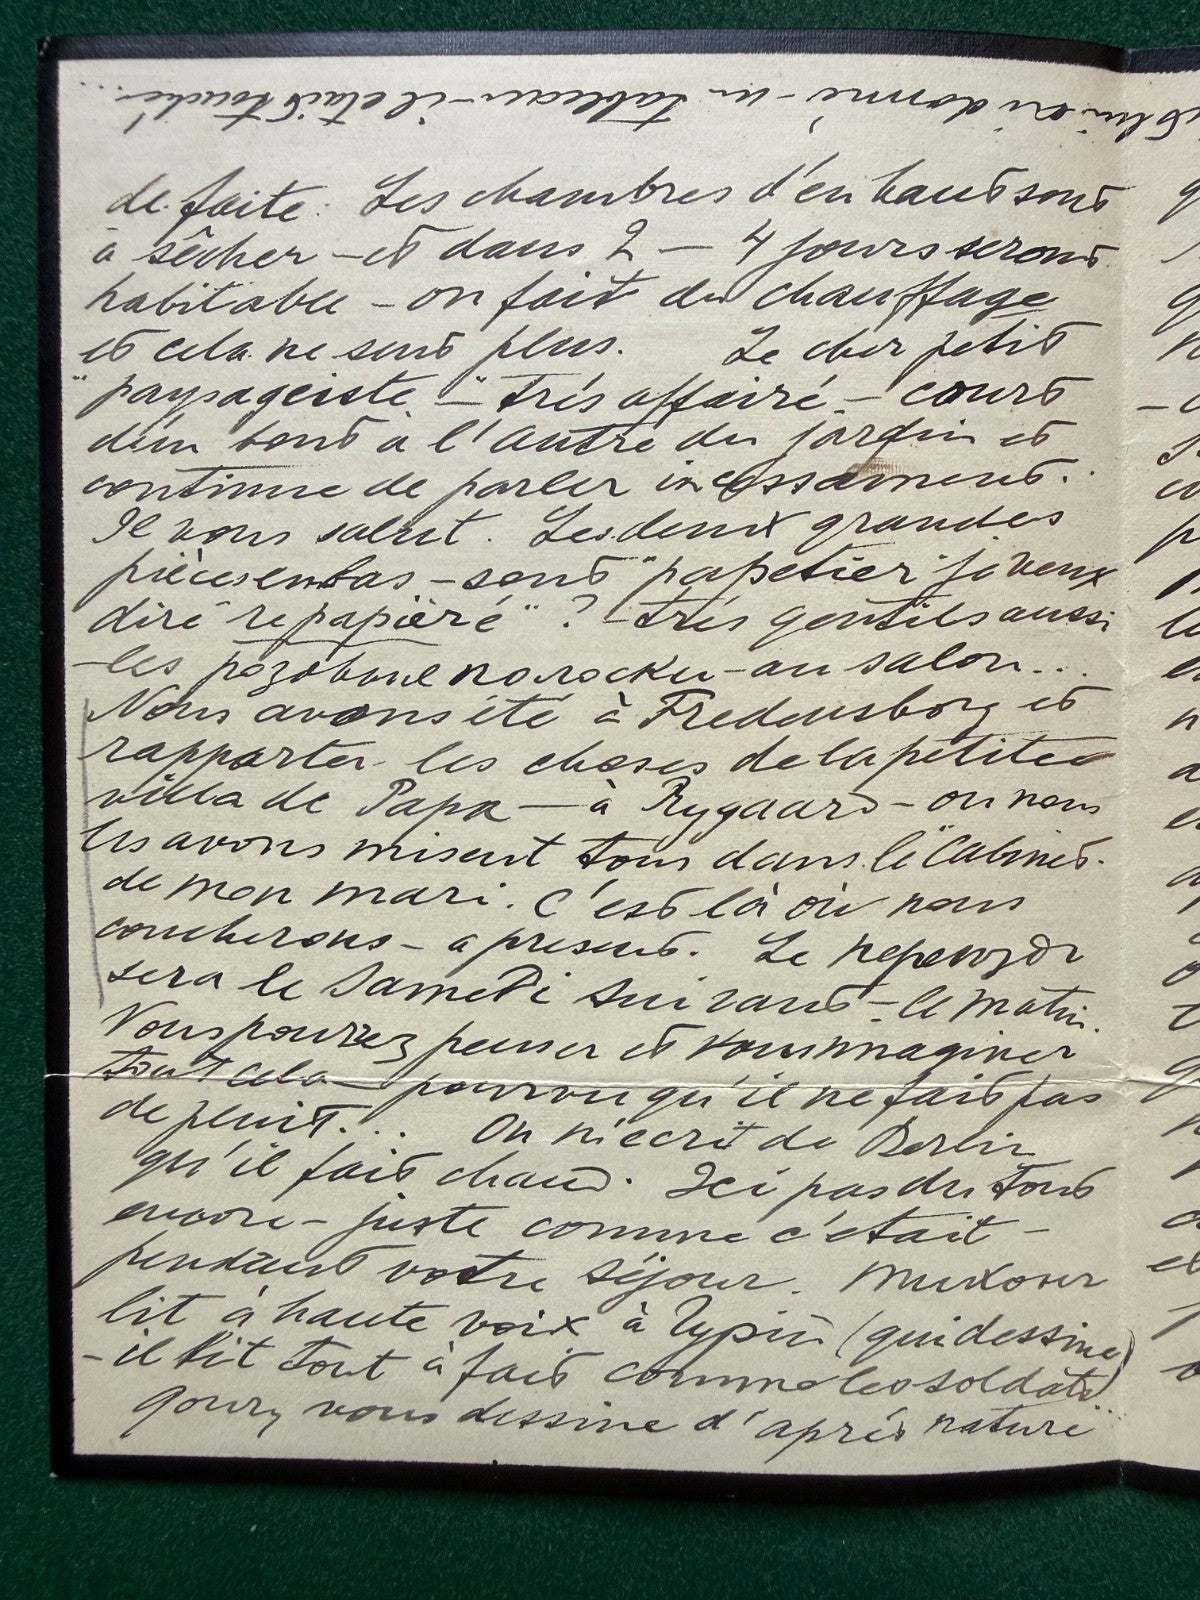 lui ai donné - un tableau - il était touché...
de faite. Les chambres d'en haut sont
à sêcher - et dans 2 - 4 jours seront
habitable - on fait du chauffage
et cela ne sent plus. Le cher petit
"paysageiste" - trés affairé - court
d'un bout à l'autre du jardin et
continue de parler incessament.
Il vous salut. Les deux grandes
pièces en bas - sont "papetier" je veux
dire "repapiéré" ? - trés gentils aussi
- les розовыя полоски - au salon...
Nous avons été à Fredensborg et
rapporter les choses de la petite
villa de Papa - à Rygaard - ou nous
les avons misent tous dans le "Cabinet"
de mon mari. C'est là où nous
coucherons - a present. Le переезд
sera le Samedi suivant - le matin.
Vous pourrez penser et vous imaginer
tout cela - pourvu qu'il ne fait pas
de pluit... On m'écrit de Berlin
qu'il fait chaud. Ici pas du tout
encore - juste comme c'etait -
pendant votre séjour. Тихон
lit à haute voix à Гурiй (qui dessine)
- il lit tout à fait comme les soldats
vous dessine d'aprés nature"